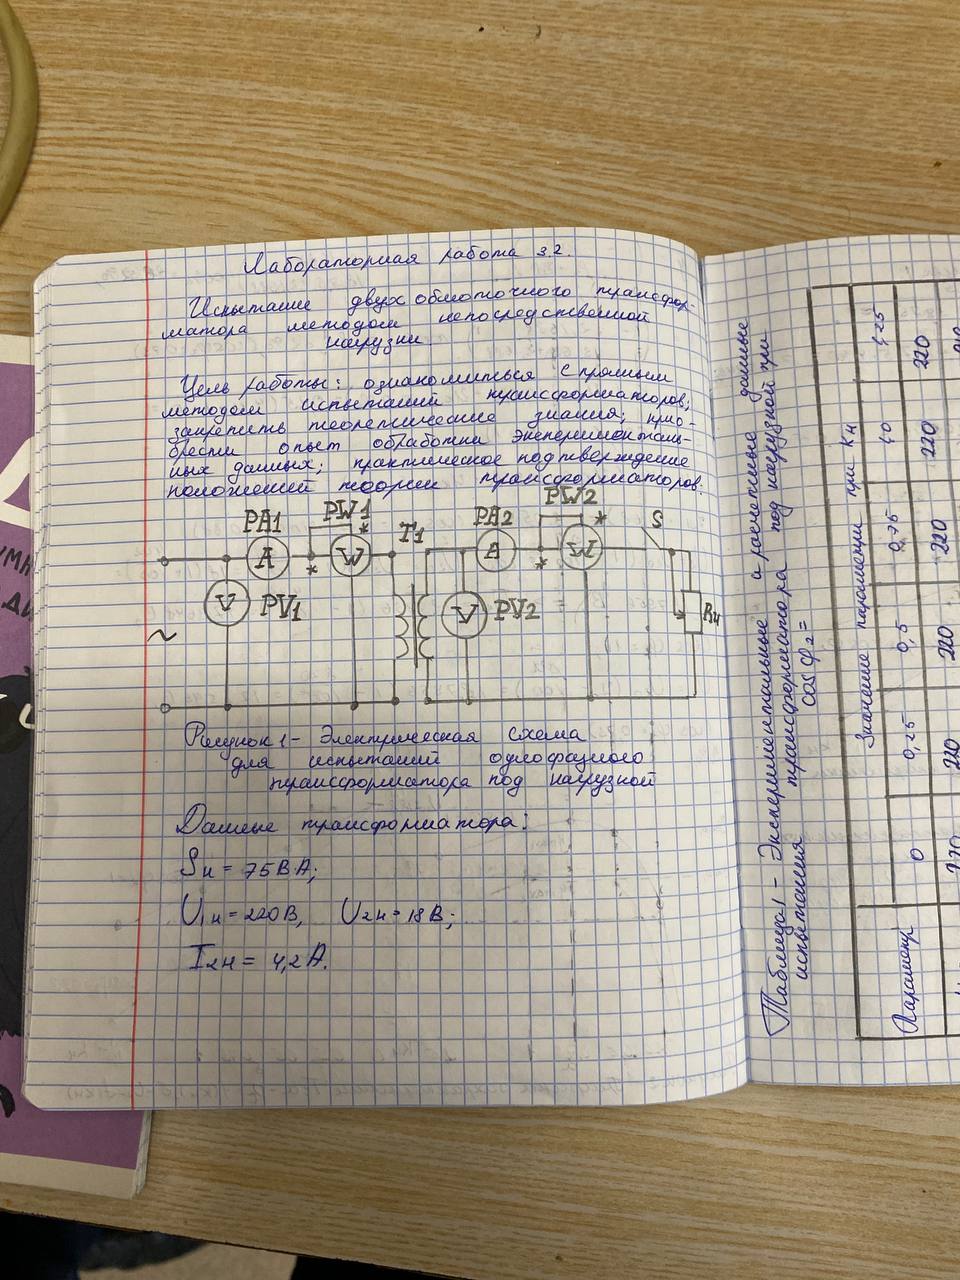 Лабораторная работа 3.2.
Испытание двухобмоточного трансфор-
матора методом непосредственной
нагрузки
Цель работы: ознакомиться с прямым
методом испытаний трансформаторов;
закрепить теоретические знания; прио-
брести опыт обработки эксперименталь-
ных данных; практическое подтверждение
положений теории трансформаторов.
PA1 PW1 T1 PA2 PW2 S
A * * W A * * W
V PV1 V PV2 Rн
~
Рисунок 1 - Электрическая схема
для испытаний однофазного
трансформатора под нагрузкой
Данные трансформатора:
Sн = 75 ВА;
U1н = 220 В, U2н = 18 В;
I2н = 4,2 А.
Таблица 1 - Экспериментальные и расчетные данные
испытания трансформатора под нагрузкой при
cos φ2 =
Параметр
Значение параметра при Кн
0 0,25 0,5 0,75 1,0 1,25
220 220 220 220 220